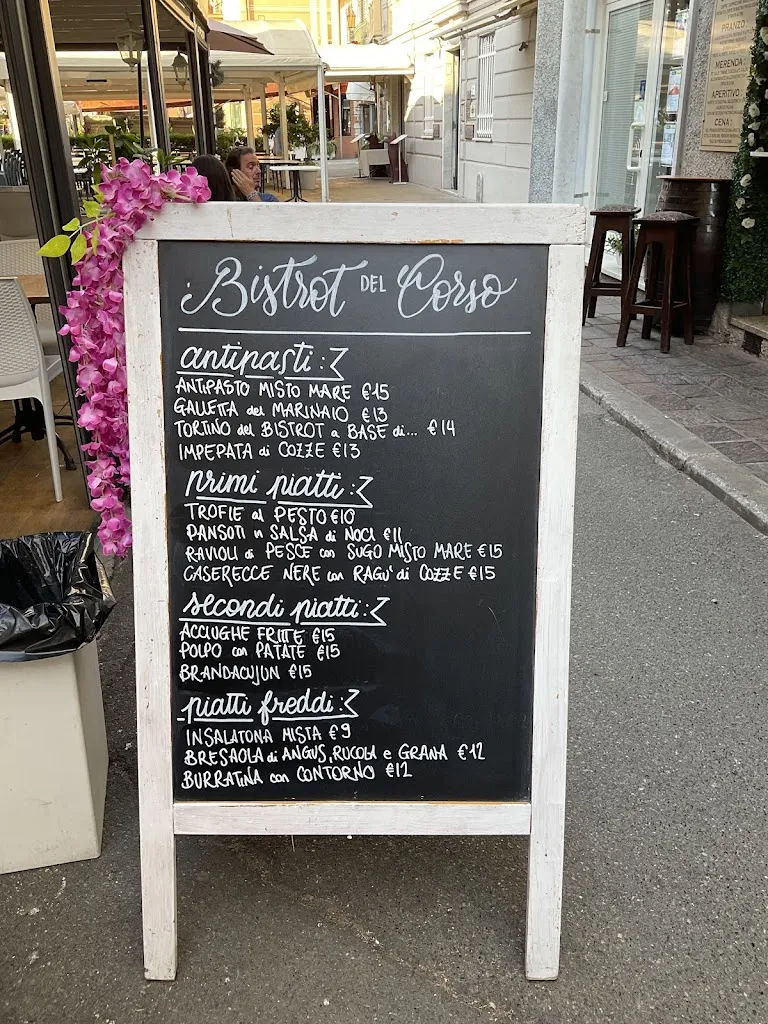 Bistrot DEL Corso
antipasti:
ANTIPASTO MISTO MARE €15
GALLETTA del MARINAIO €13
TORTINO del BISTROT a BASE di... €14
IMPEPATA di COZZE €13
primi piatti:
TROFIE al PESTO €10
PANSOTI in SALSA di NOCI €11
RAVIOLI di PESCE con SUGO MISTO MARE €15
CASERECCE NERE con RAGU' di COZZE €15
secondi piatti:
ACCIUGHE FRITTE €15
POLPO con PATATE €15
BRANDACUJUN €15
piatti freddi:
INSALATONA MISTA €9
BRESAOLA di ANGUS, RUCOLA e GRANA €12
BURRATINA con CONTORNO €12
PRANZO
MERENDA:
APERITIVO:
CENA: